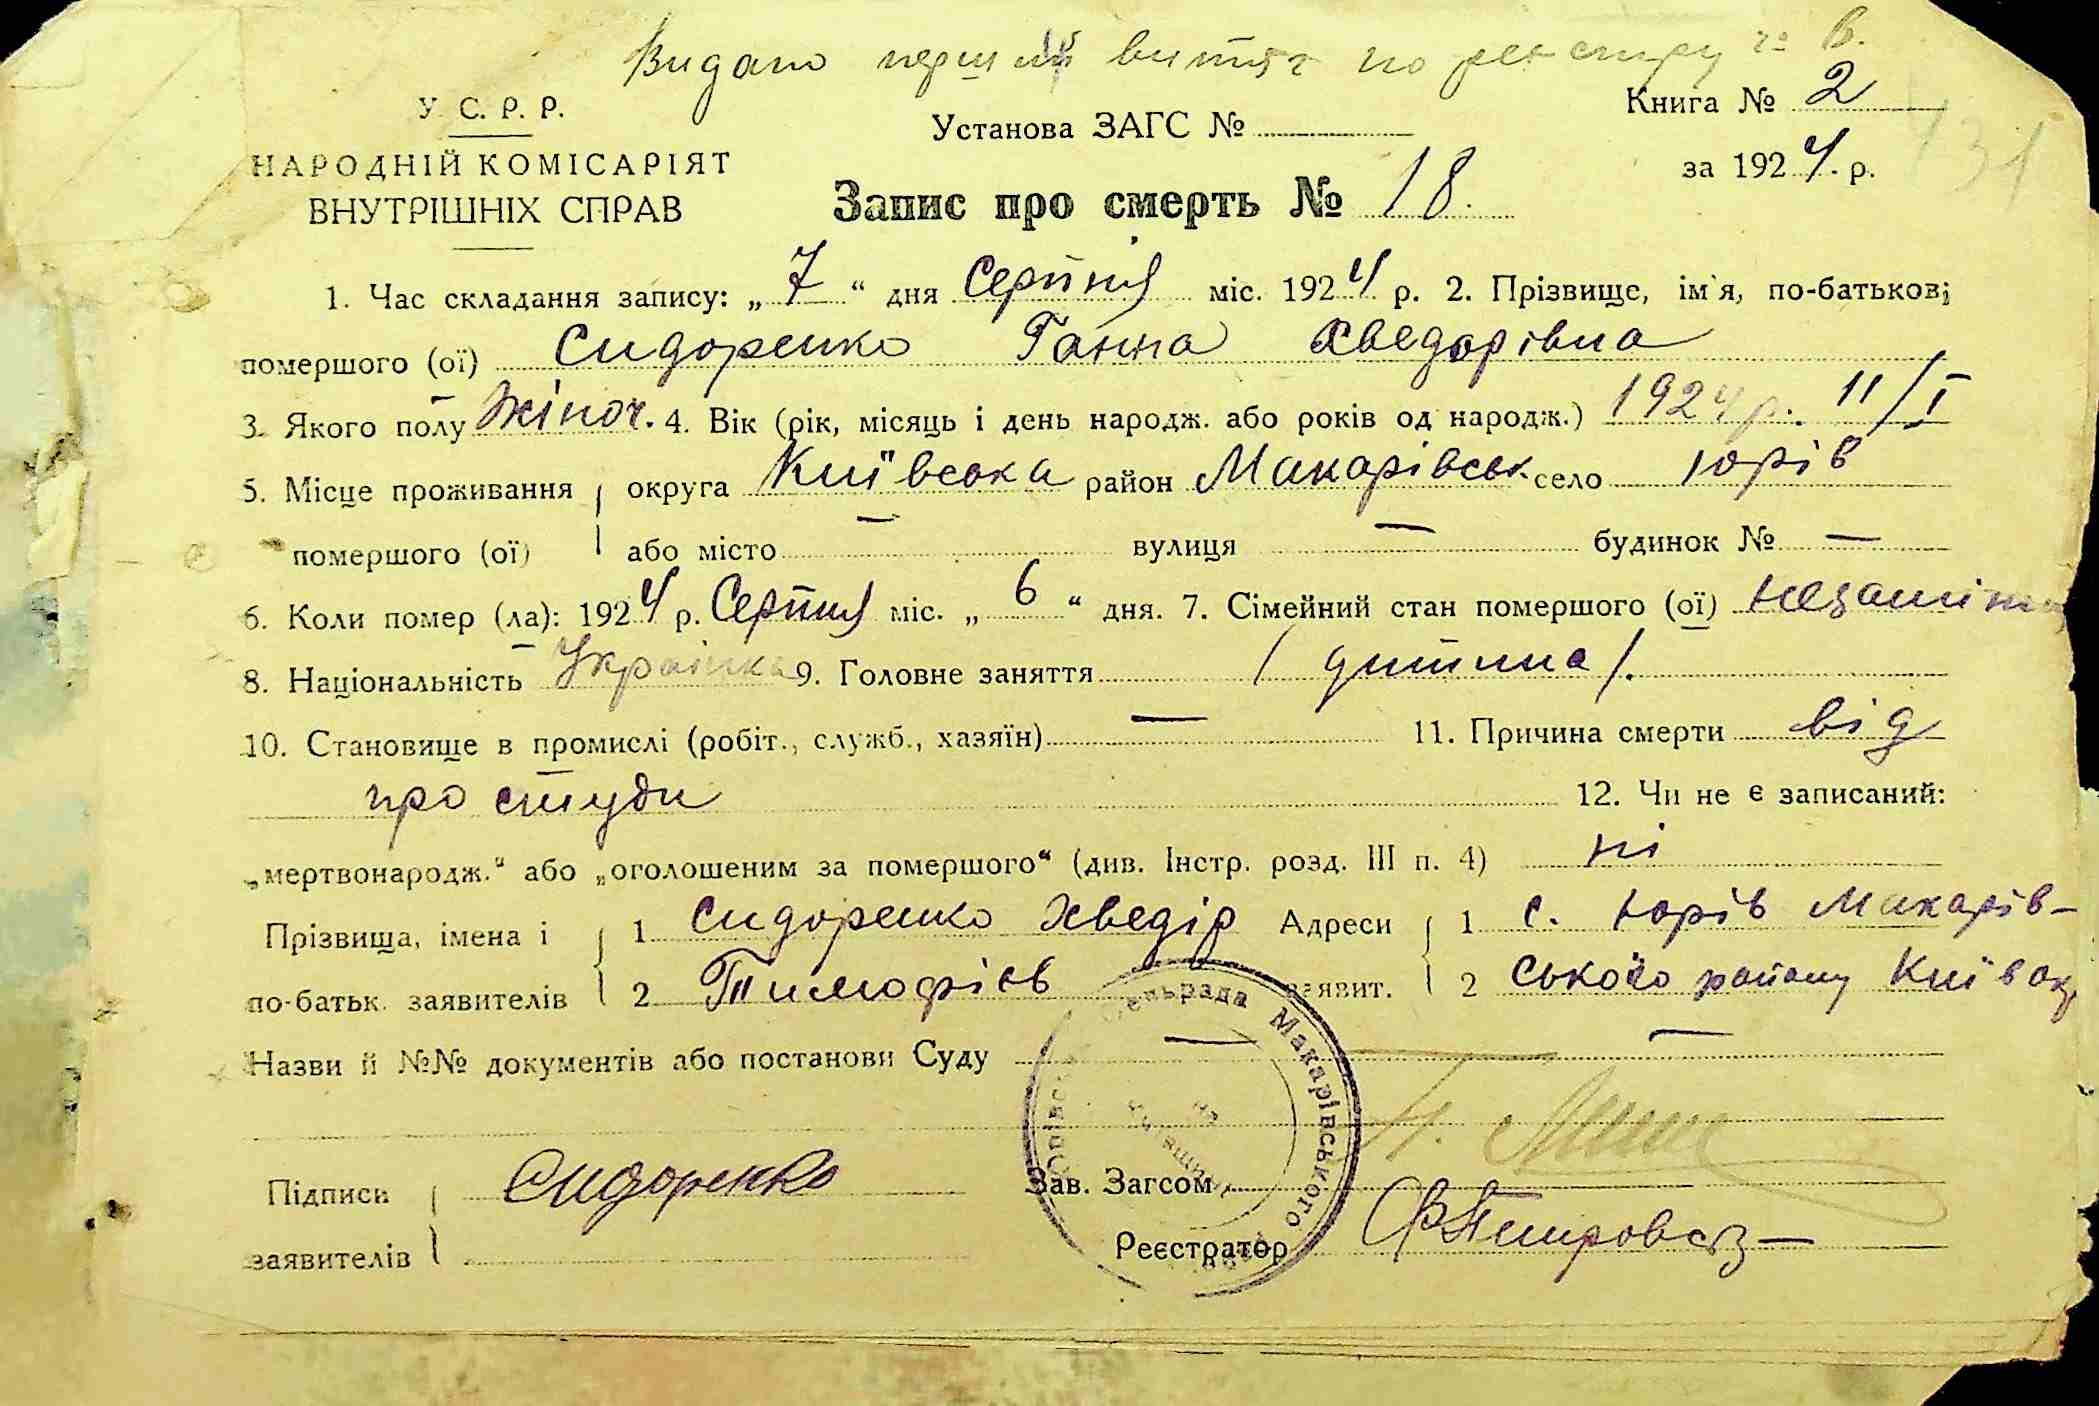 Видано перший витяг по реєстру
У. С. Р. Р.
НАРОДНІЙ КОМІСАРІЯТ
ВНУТРІШНІХ СПРАВ
Установа ЗАГС №
Книга № 2
за 1924 р.
Запис про смерть № 18.
1. Час складання запису: „ 7 “ дня Серпня міс. 1924 р. 2. Прізвище, ім'я, по-батькові
помершого (ої) Сидоренко Ганна Хведорівна
3. Якого полу жіноч. 4. Вік (рік, місяць і день народж. або років од народж.) 1924 р. 11/I
5. Місце проживання округа Київська район Макарівськ село Юрів
помершого (ої) або місто — вулиця — будинок № —
6. Коли помер (ла): 1924 р. Серпня міс. „ 6 “ дня. 7. Сімейний стан помершого (ої)
8. Національність Українка 9. Головне заняття / дитина /.
10. Становище в промислі (робіт., служб., хазяїн) — 11. Причина смерти від
простуди 12. Чи не є записаний:
„мертвонародж.“ або „оголошеним за помершого“ (див. Інстр. розд. III п. 4) ні
Прізвища, імена і 1 Сидоренко Хведір Адреси 1 с. Юрів Макарів-
по-батьк. заявителів 2 Тимофіїв заявит. 2 ського району Київ ок
Назви й №№ документів або постанови Суду — —
Підписи Сидоренко Зав. Загсом
заявителів Реєстратор
сельрада Макарівського